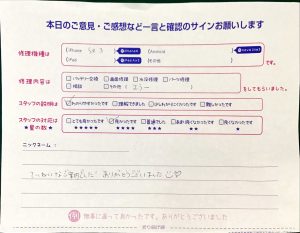 本日のご意見・ご感想など一言と確認のサインお願いします
修理機種は
iPhone SE 3
iPhone
Android
iPad
その他
です。
修理内容は
バッテリー交換 画面修理 水没修理 パーツ修理
相談 その他 ( エラー )
をしてもらいました。
スタッフの説明は
わかりやすかった 理解できました 少しわかりにくかった 難しかった
スタッフの対応は
★星の数★
とても良かった 良かった 普通でした あまり良くなかった 良くなかった
★★★★★ ★★★★ ★★★ ★★ ★
ニックネーム：
ありがとうございました
例 無事に直って良かったです。ありがとうございました